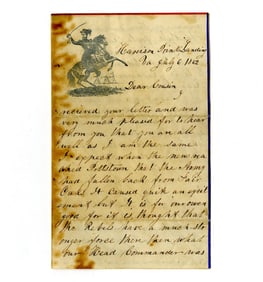 Harrison Point Landing
Va July 6 1862
Dear Cousin
I
received your letter and was
very much pleased for to hear
from you that you are all
well as I am the same
I expect when the news
ched Pottstown that the Army
had fallen back from
it caused quite an excit
ement but it is for our own
good for it is thought that
the Rebels have a much str
onger force there then what
our Head Commander was